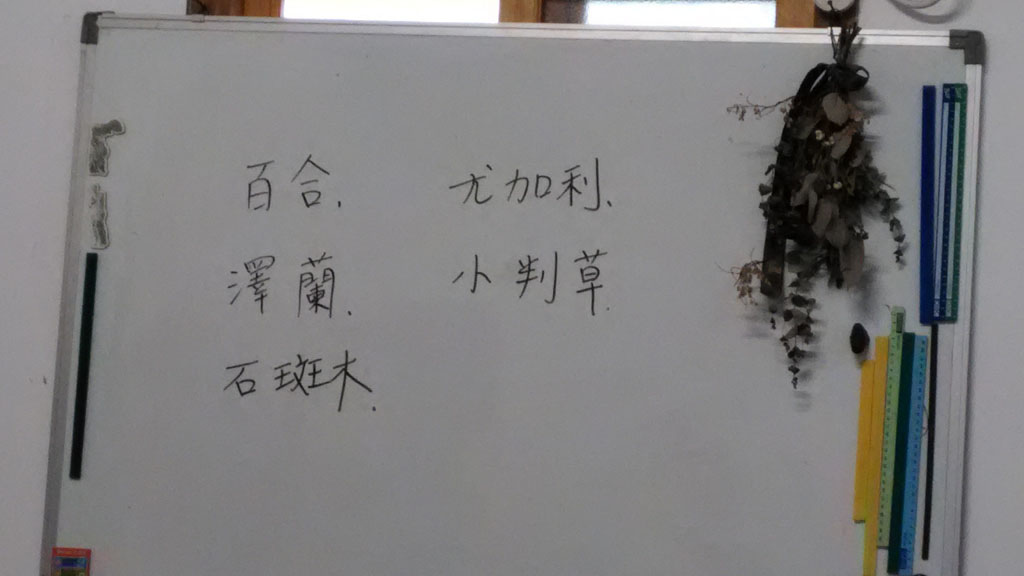 百合. 尤加利.
澤蘭. 小判草.
石斑木.